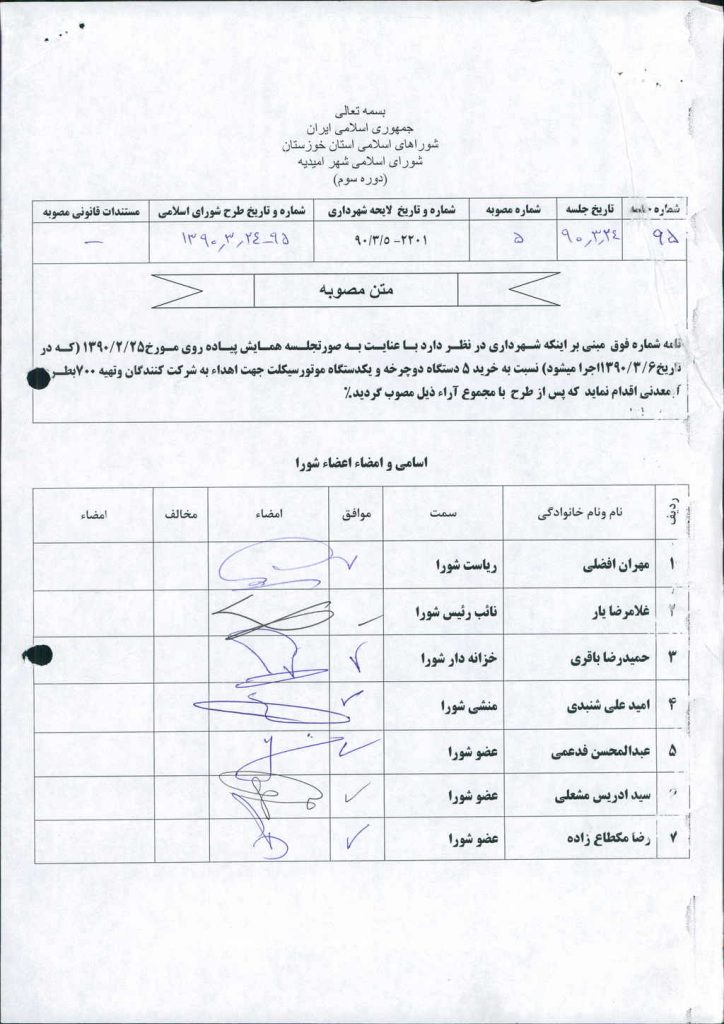 بسمه تعالی
جمهوری اسلامی ایران
شوراهای اسلامی استان خوزستان
شورای اسلامی شهر امیدیه
(دوره سوم)
شماره جلسه تاریخ جلسه شماره مصوبه شماره و تاریخ لایحه شهرداری شماره و تاریخ طرح شورای اسلامی مستندات قانونی مصوبه
۹۵ ۹۰,۳,۲٤ ۵ ۲۲۰۱- ۹۰/۳/۵ ۹۵-۱۳۹۰,۳,۲٤ —
متن مصوبه
نامه شماره فوق مبنی بر اینکه شهرداری در نظر دارد با عنایت به صورتجلسه همایش پیاده روی مورخ۱۳۹۰/۲/۲۵ (که در
تاریخ۱۳۹۰/۳/۶اجرا میشود) نسبت به خرید ۵ دستگاه دوچرخه و یکدستگاه موتورسیکلت جهت اهداء به شرکت کنندگان وتهیه ۷۰۰بطر
معدنی اقدام نماید که پس از طرح با مجموع آراء ذیل مصوب گردید٪
اسامی و امضاء اعضاء شورا
ردیف نام ونام خانوادگی سمت موافق امضاء مخالف امضاء
۱ مهران افضلی ریاست شورا
۲ غلامرضا یار نائب رئیس شورا
۳ حمیدرضا باقری خزانه دار شورا
۴ امید علی شنبدی منشی شورا
۵ عبدالمحسن فدعمی عضو شورا
سید ادریس مشعلی عضو شورا
۷ رضا مکطاع زاده عضو شورا